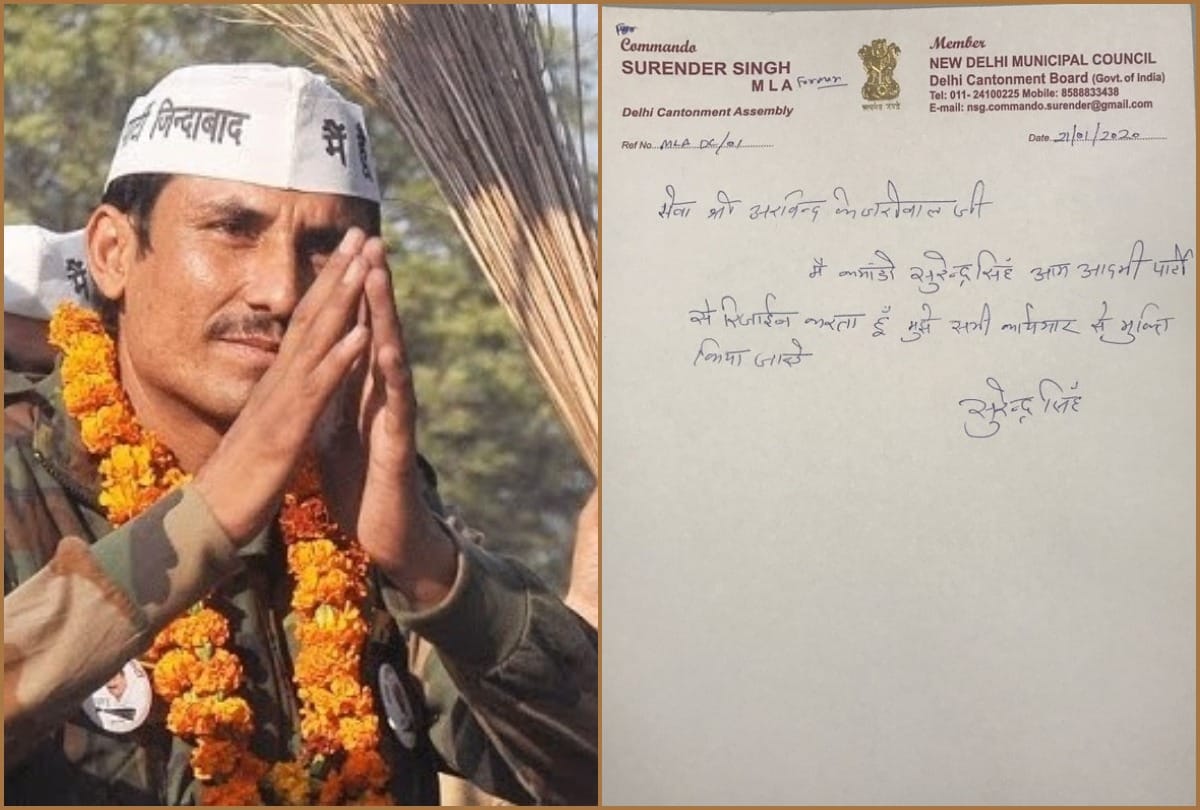 जिन्दाबाद
मैं
मैं
Commando
SURENDER SINGH
MLA Former
Delhi Cantonment Assembly
Ref No. MLA DC/01
सत्यमेव जयते
Member
NEW DELHI MUNICIPAL COUNCIL
Delhi Cantonment Board (Govt. of India)
Tel: 011- 24100225 Mobile: 8588833438
E-mail: nsg.commando.surender@gmail.com
Date 21/01/2020
सेवा श्री अरविन्द केजरीवाल जी
मैं कमांडो सुरेन्द्र सिंह आम आदमी पार्टी
से रिजाईन करता हूँ मुझे सभी कार्यभार से मुक्ति
किया जाये
सुरेन्द्र सिंह